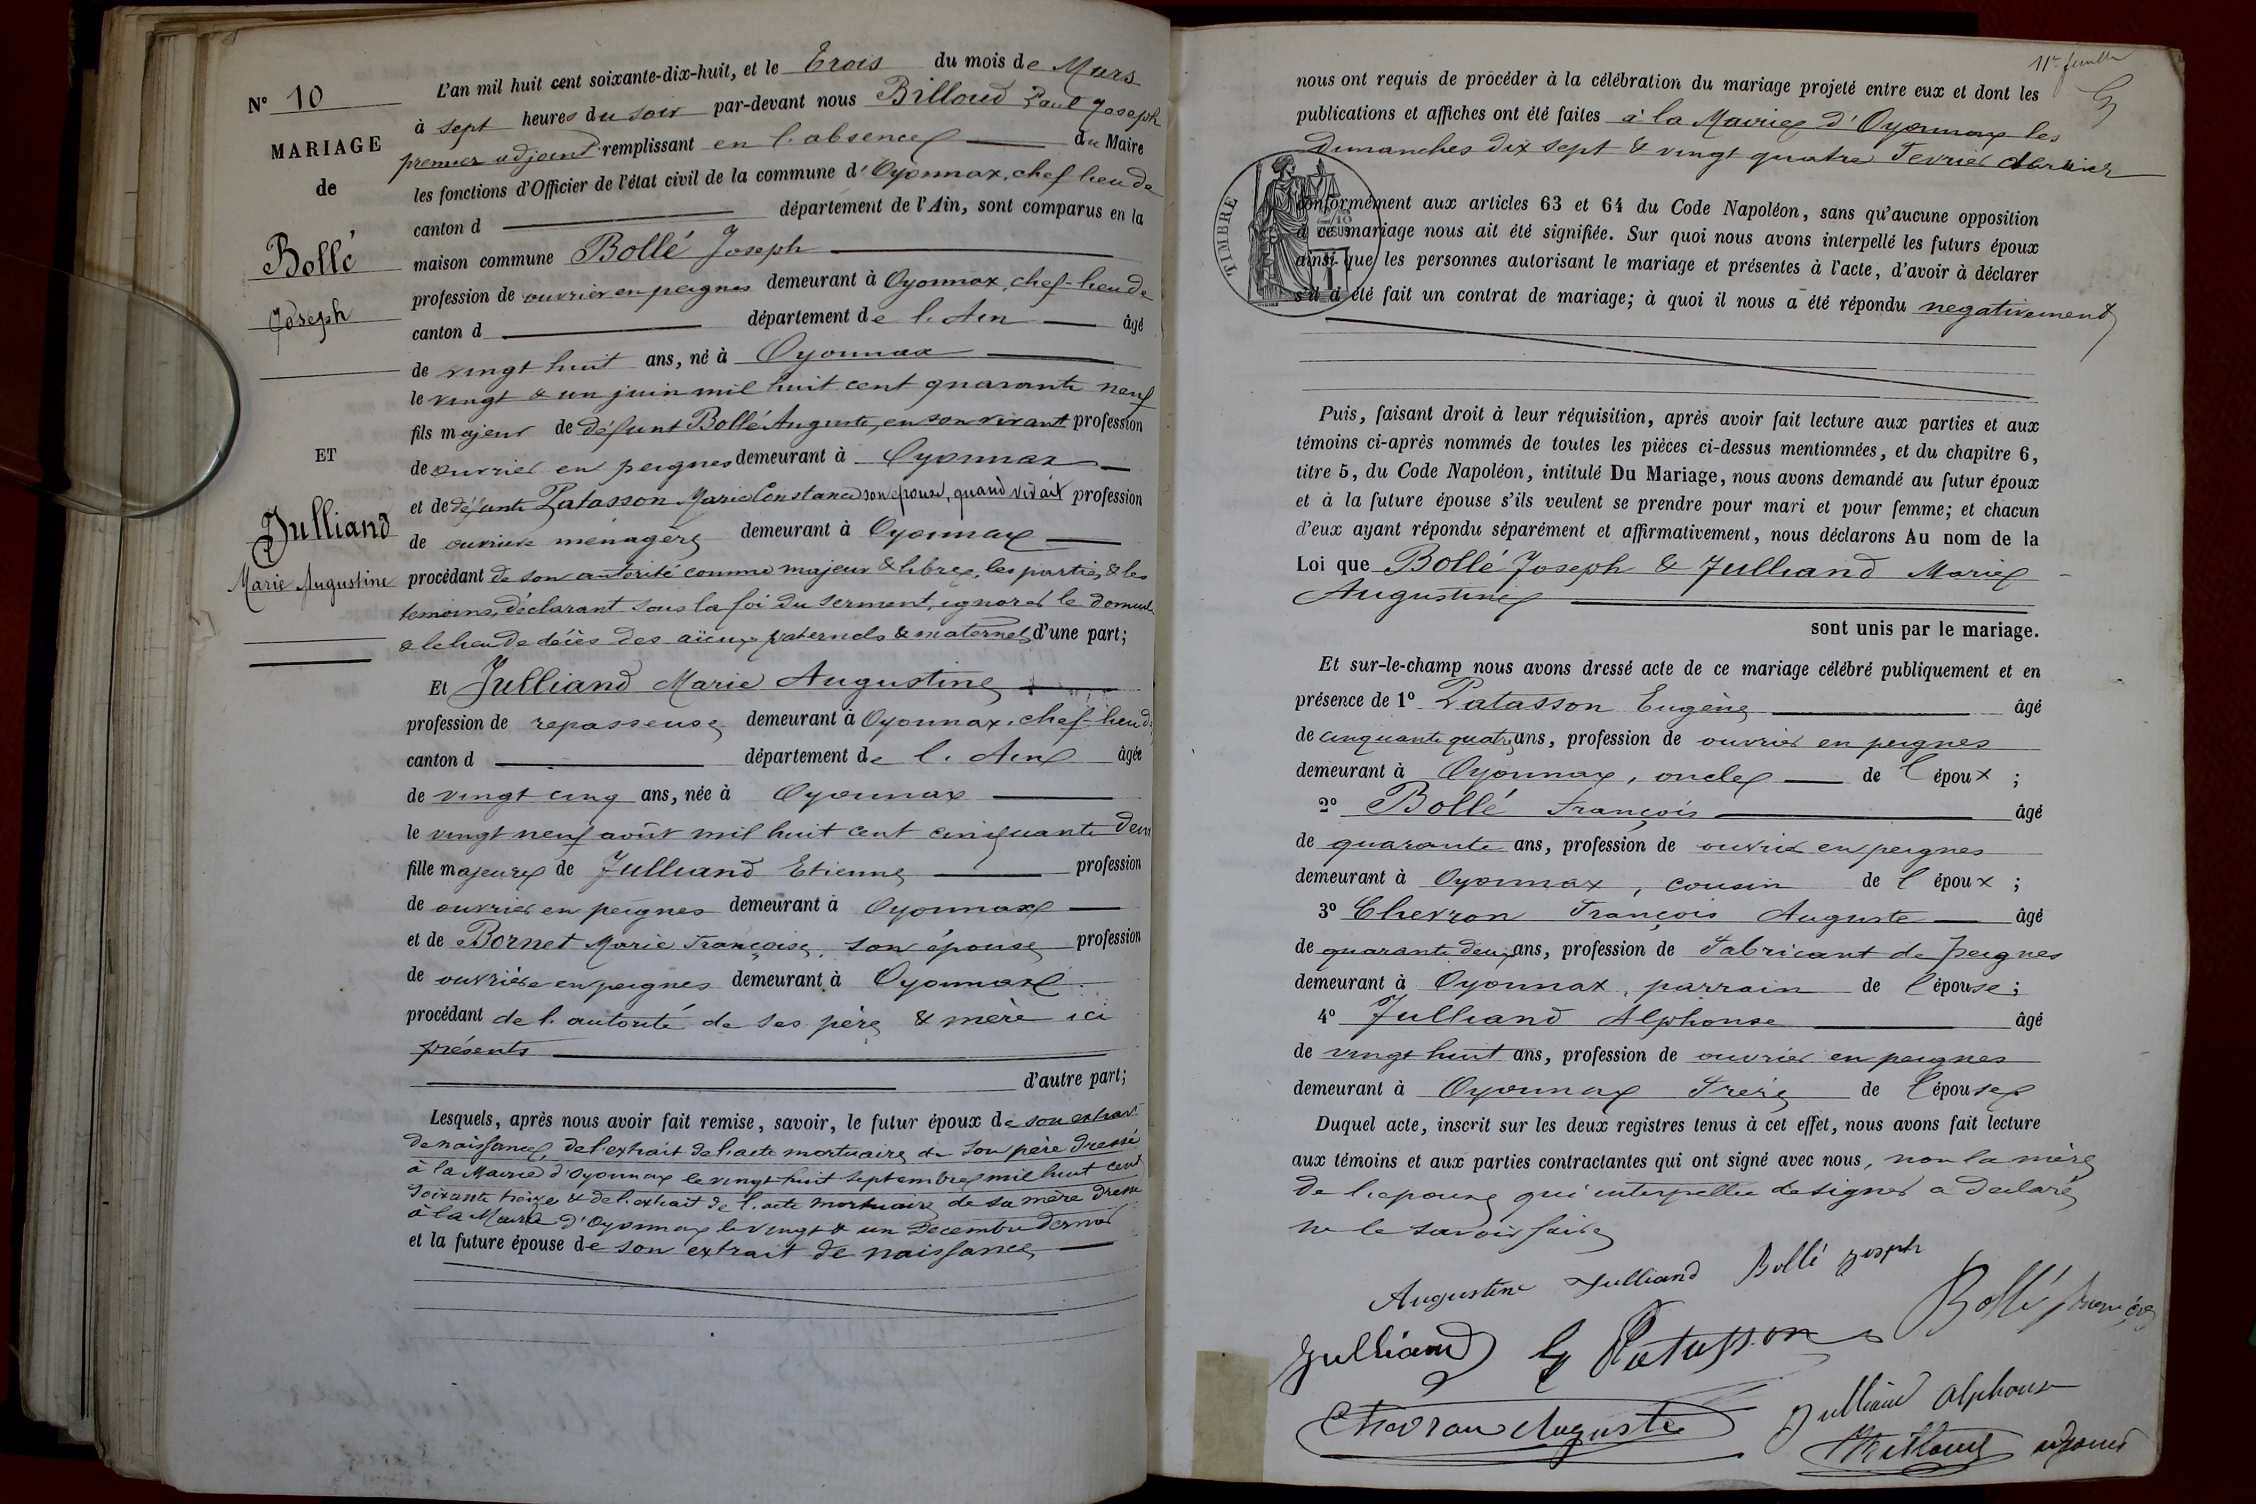 N° 10
MARIAGE
de
Bollé
Joseph
ET
Julliand
Marie Augustine
L'an mil huit cent soixante-dix-huit, et le Trois du mois de Mars
à sept heures du soir par-devant nous Billoud Paul Joseph
premier adjoint remplissant en l'absence du Maire
les fonctions d'Officier de l'état civil de la commune d'Oyonnax, chef lieu de
canton d département de l'Ain, sont comparus en la
maison commune Bollé Joseph
profession de ouvrier en peignes demeurant à Oyonnax, chef-lieu de
canton d département de l'Ain âgé
de vingt huit ans, né à Oyonnax
le vingt & un juin mil huit cent quarante neuf
fils majeur de défunt Bollé Auguste, en son vivant profession
de ouvrier en peignes demeurant à Oyonnax
et de défunte Patasson Marie Constance son épouse, quand vivait profession
de ouvrière ménagère demeurant à Oyonnax
procédant de son autorité comme majeur & libre, les parties & les
témoins, déclarant sous la foi du serment, ignorer le domicile
& le lieu de décès des aïeux paternels & maternels d'une part;
Et Julliand Marie Augustine
profession de repasseuse demeurant à Oyonnax, chef-lieu de
canton d département de l'Ain âgée
de vingt cinq ans, née à Oyonnax
le vingt neuf août mil huit cent cinquante deux
fille majeure de Julliand Etienne profession
de ouvrier en peignes demeurant à Oyonnax
et de Bornet Marie Françoise, son épouse profession
de ouvrière en peignes demeurant à Oyonnax
procédant de l'autorité de ses père & mère ici
présents
d'autre part;
Lesquels, après nous avoir fait remise, savoir, le futur époux de son extrait
de naissance, de l'extrait de l'acte mortuaire de son père dressé
à la Mairie d'Oyonnax le vingt huit septembre mil huit cent
soixante treize & de l'extrait de l'acte mortuaire de sa mère dressé
à la Mairie d'Oyonnax le vingt & un Decembre dernier
et la future épouse de son extrait de naissance
11e feuille
nous ont requis de procéder à la célébration du mariage projeté entre eux et dont les
publications et affiches ont été faites à la Mairie d'Oyonnax les
Dimanches dix sept & vingt quatre Fevrier dernier
TIMBRE
conformément aux articles 63 et 64 du Code Napoléon, sans qu'aucune opposition
à ce mariage nous ait été signifiée. Sur quoi nous avons interpellé les futurs époux
ainsi que les personnes autorisant le mariage et présentes à l'acte, d'avoir à déclarer
s'il a été fait un contrat de mariage; à quoi il nous a été répondu negativement
Puis, faisant droit à leur réquisition, après avoir fait lecture aux parties et aux
témoins ci-après nommés de toutes les pièces ci-dessus mentionnées, et du chapitre 6,
titre 5, du Code Napoléon, intitulé Du Mariage, nous avons demandé au futur époux
et à la future épouse s'ils veulent se prendre pour mari et pour femme; et chacun
d'eux ayant répondu séparément et affirmativement, nous déclarons Au nom de la
Loi que Bollé Joseph & Julliand Marie
Augustine
sont unis par le mariage.
Et sur-le-champ nous avons dressé acte de ce mariage célébré publiquement et en
présence de 1° Patasson Eugène âgé
de cinquante quatre ans, profession de ouvrier en peignes
demeurant à Oyonnax, oncle de l'époux;
2° Bollé François âgé
de quarante ans, profession de ouvrier en peignes
demeurant à Oyonnax, cousin de l'époux;
3° Chevron François Auguste âgé
de quarante deux ans, profession de Fabricant de peignes
demeurant à Oyonnax, parrain de l'épouse;
4° Julliand Alphonse âgé
de vingt huit ans, profession de ouvrier en peignes
demeurant à Oyonnax frère de l'épouse
Duquel acte, inscrit sur les deux registres tenus à cet effet, nous avons fait lecture
aux témoins et aux parties contractantes qui ont signé avec nous, non la mère
de l'epouse qui interpellée de signer a declaré
ne le savoir faire
Augustine Julliand Bollé Joseph
Julliand E Patasson Bollé François
Chevron Auguste Julliand Alphonse
Billoud adjoint